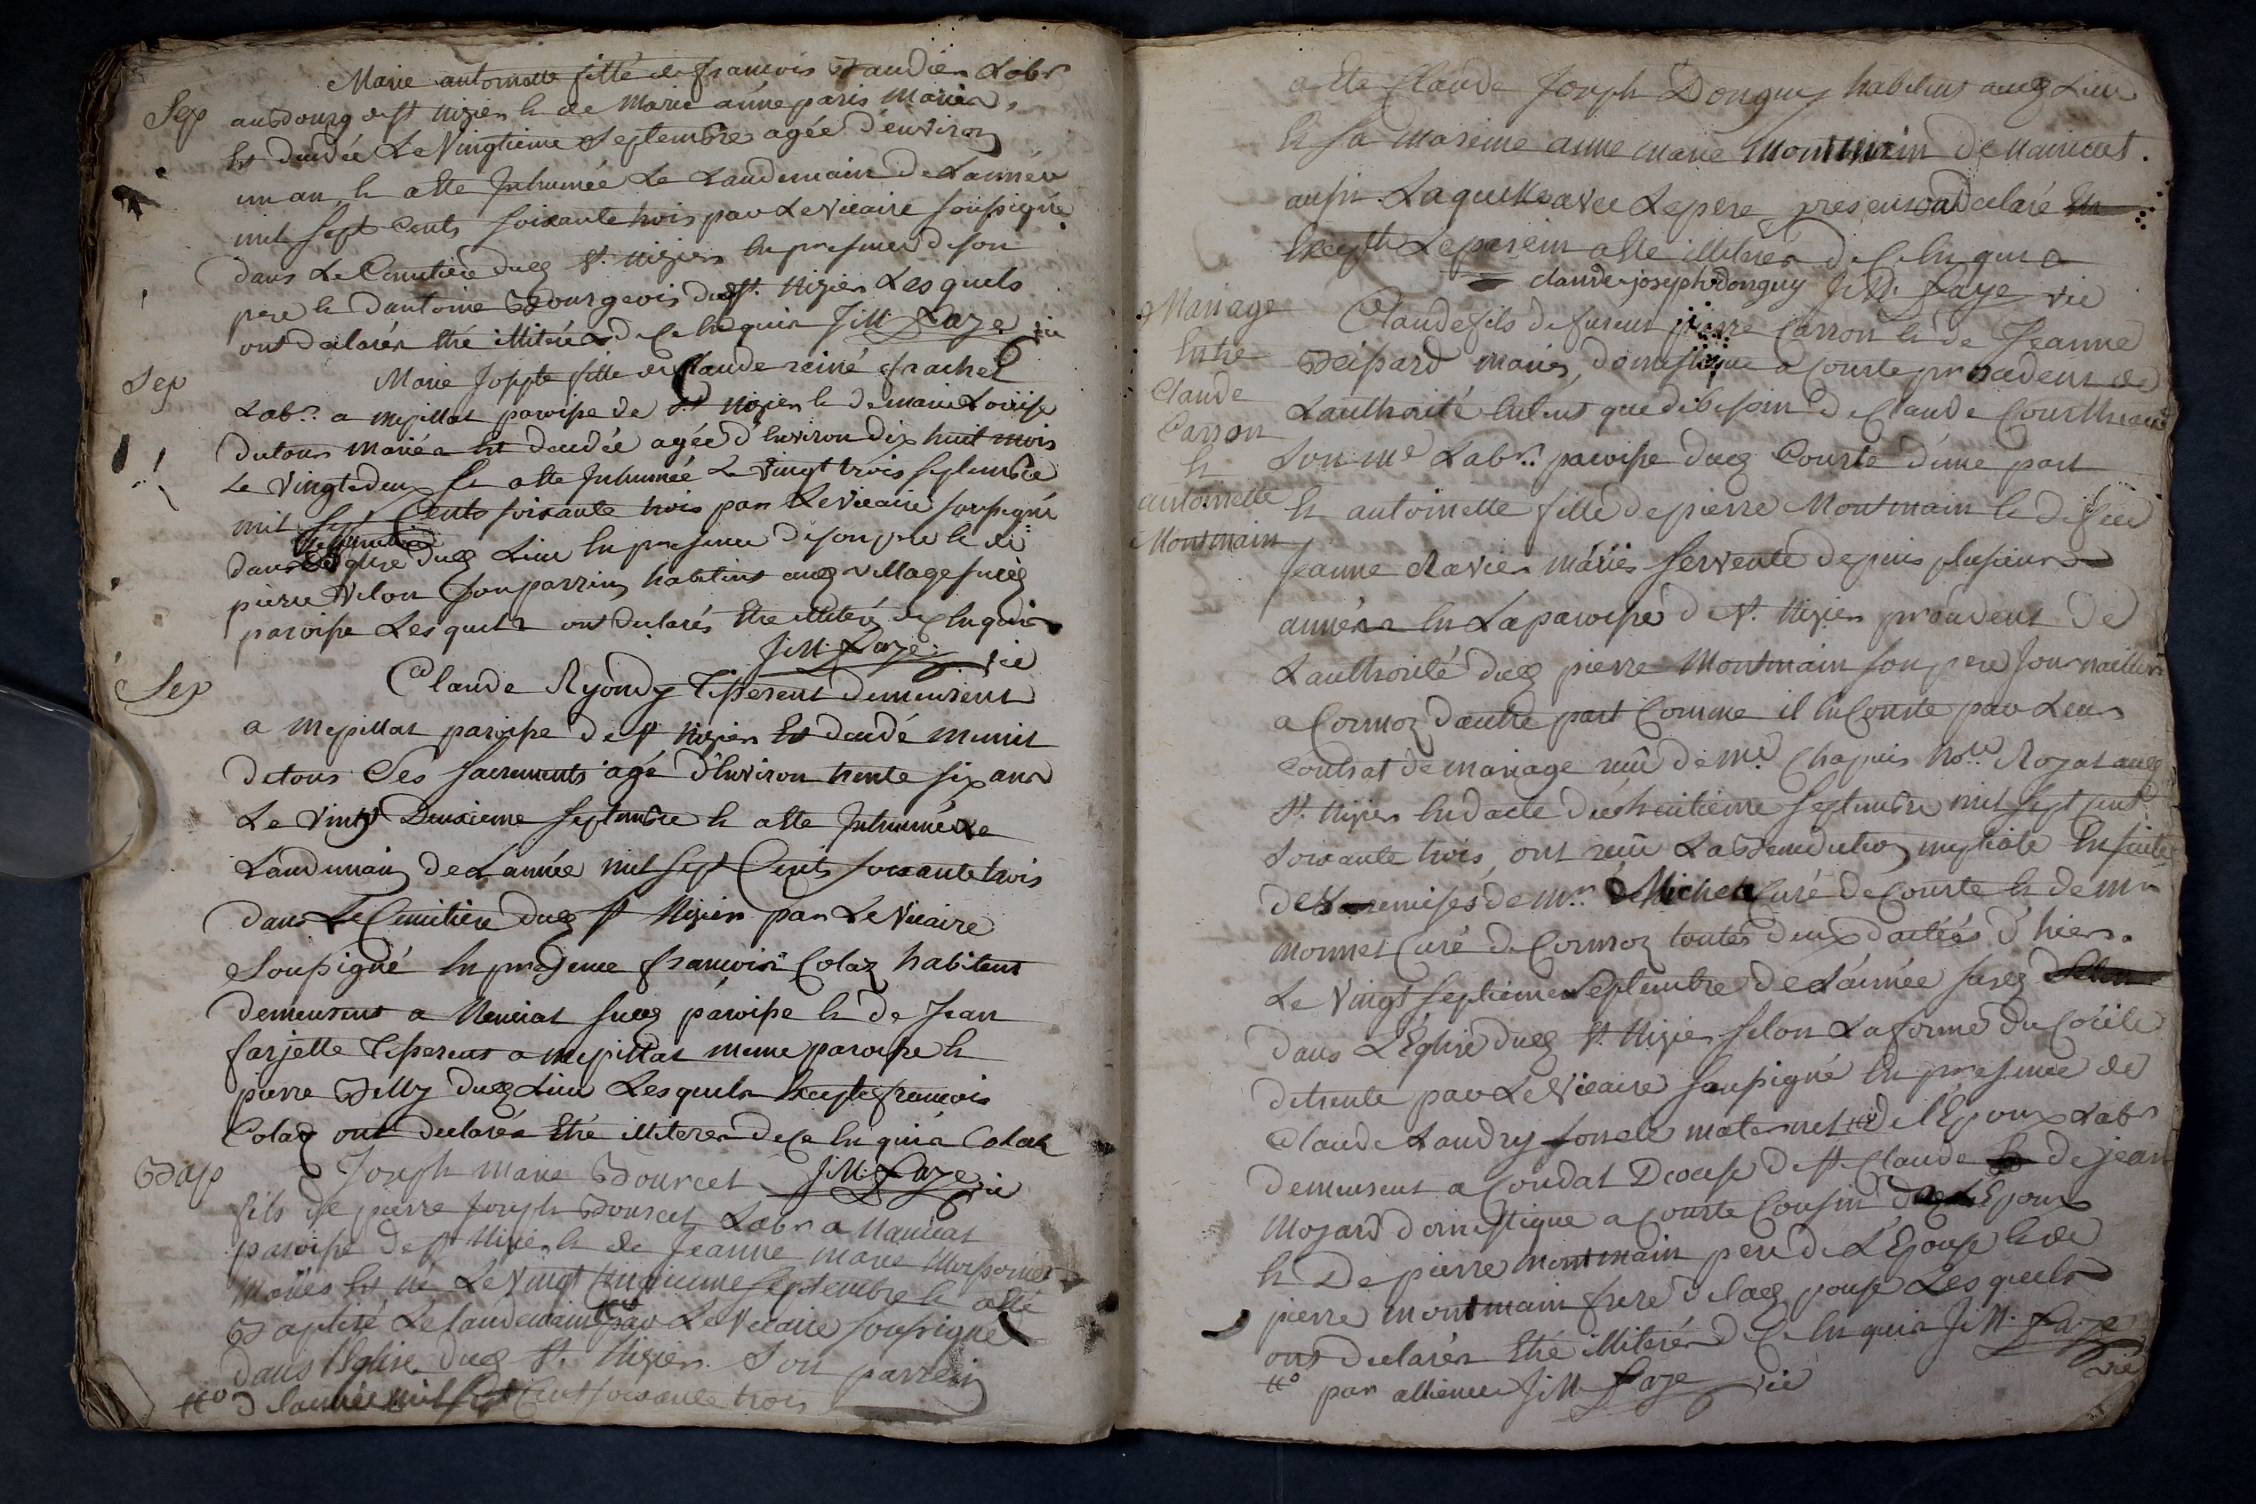 Marie antoinette fille de francois Baudier Labr
Sep
au Bourg de st nizier & de Marie anne paris Mariés,
Est decedée Le Vingtieme Septembre agée d'environ
un an & a ete Inhumée Le Landemain de L'année
mil sept Cents soixante trois par Le vicaire soussigné
dans Le Cimitiere dud st. nizier En presence de son
pere & d'antoine Bourgeois dud st. nizier Lesquels
ont declarés Etré illiterés de ce Enquis J: M: Faye vic
Sep
Marie Josepte fille de Claude reiné frachet
Labr. a mepillat paroisse de st nizier & de marie Louise
dutour mariés Est decedée agée d'Environ dix huit mois
Le vingt deux & a ete Inhumée Le vingt trois septembre
mil sept Cents soixante trois par Le vicaire soussigné
dans Le cimitiere dud Lieu En presence de son pere & de
pierre Velon son parrin habitent aud village susd
paroisse Lesquels ont declarés Etre illiterés de ce Enquis
J: M: Faye. vic
Sep
Claude Ryondy Tisserent demeurent
a mepillat paroisse de st nizier Est decedé munit
de tous Ses sacrements agé d'Environ trente six ans
Le vingt Deuxieme septembre & a ete Inhumé Le
Landemain de L'année mil sept Cents soixante trois
dans Le Cimitiere dud st Nizier par Le vicaire
Soussigné En presence francois Colaz habitent
demeurent a Neuviat susd paroisse & de Jean
farjette Tisserent a mepillat meme paroisse &
pierre Velly dud Lieu Lesquels Excepté francois
Colaz ont declarés Etré illiteres de ce Enquis Colaz
Bap
Joseph Marie Bourcet J: M: Faye vic
fils de pierre Joseph Bourcet Labr a Nauviat
paroisse de st Nizier & de Jeanne marie Moissonier
Mariés Est né Le vingt sixieme septembre & a ete
Baptisé Le Landemain par Le vicaire soussigné
dans l'Eglise dud st. Nizier. Son parrein
de lannée mil sept Cent soixante trois
a ete Claude Joseph Donguy habitent aud Lieu
& sa mareine anne marie Montmain de Nauviat.
ausi. Laquelle avec Le pere present a declaré
Excepté Le parrein a ete illiteré de ce Enquis
claude joseph donguy J: M: Faye vic
Mariage
Entre
Claude
Carron
&
antoinette
Montmain
Claude fils de feu pierre Carron & de Jeanne
Deipard mariés, domestique a Courte procedent de
L'authorité En tent que de besoin de Claude Courtheaux
Son me Labr. paroisse dud Courte d'une part
& antoinette fille de pierre Montmain & de feu
Jeanne Ravier máriés servente depuis plusieurs
années En La paroisse de st. Nizier procedent de
L'authorité dud pierre Montmain son pere Journaillier
a Cormoz d'autre part Comme il En Conste par Leur
contrat de mariage reçu de me. Chapuis nore. Royal aud
st. Nizier En dacte du huitieme septembre mil sept cent
soixante trois, ont reçu La Benediction nuptiale Ensuite
des remises de mr. Michel Curé de Courte & de mr
monnet Curé de Cormoz toutes deux dactées d'hier.
Le vingt septieme septembre de L'année susd
dans L'Eglise dud st. Nizier selon La forme du Concile
de trente par Le vicaire soussigné En presence de
Claude Landry soncle maternel de l'Epoux Labr
demeurent a Condat Diocese de st Claude de jean
Mozard domestique a Courte Cousin de L'Epoux
& De pierre montmain pere de L'Epouse & de
pierre montmain frere de lad Epouse Lesquels
ont declarés Etré illiterés de ce Enquis J: M: Faye
vic
par allience J: M: Faye vic